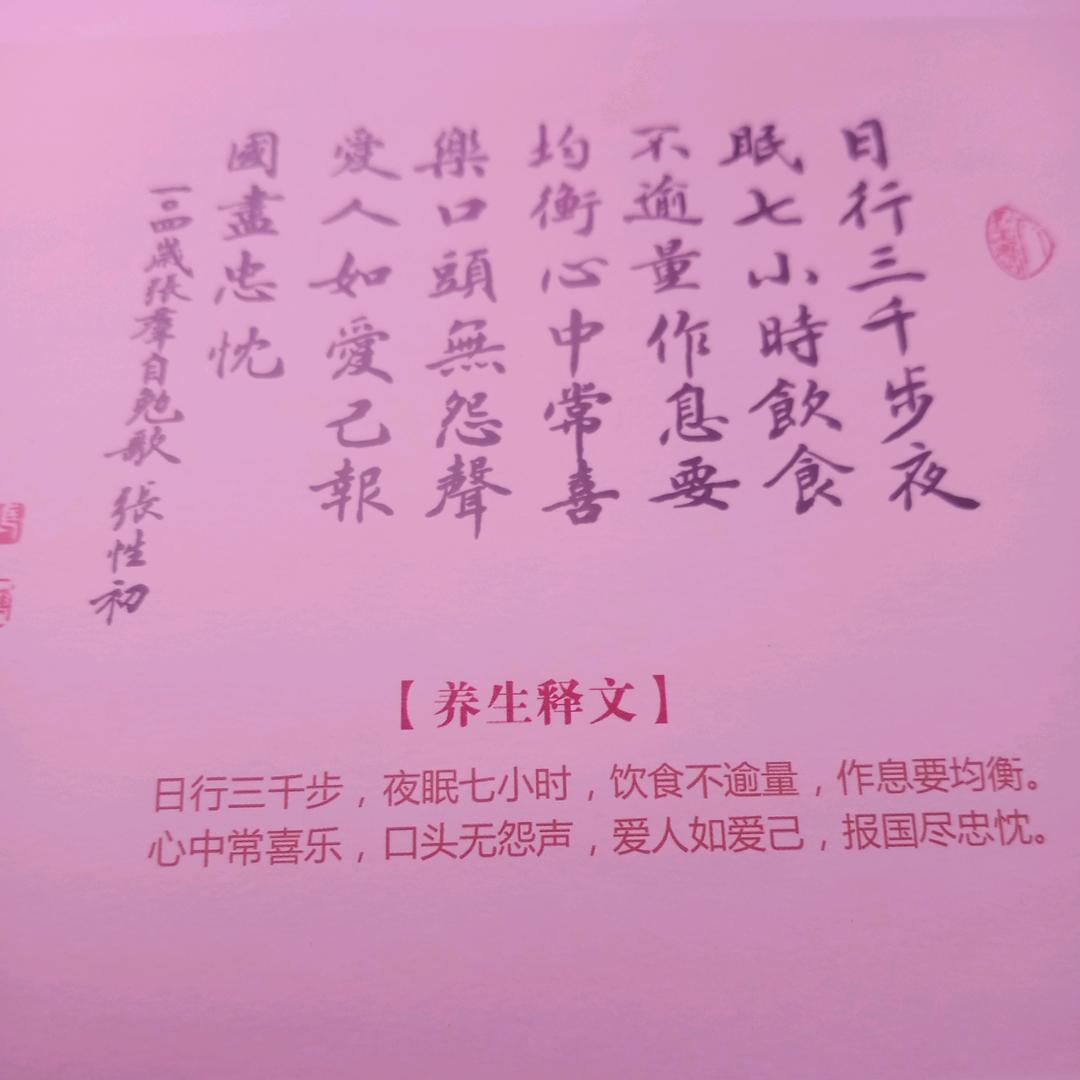 日行三千步夜
眠七小時飲食
不逾量作息要
均衡心中常喜
樂口頭無怨聲
愛人如愛己報
國盡忠忱
一〇四歲張羣自勉歌 張性初
【养生释文】
日行三千步，夜眠七小时，饮食不逾量，作息要均衡。
心中常喜乐，口头无怨声，爱人如爱己，报国尽忠忱。